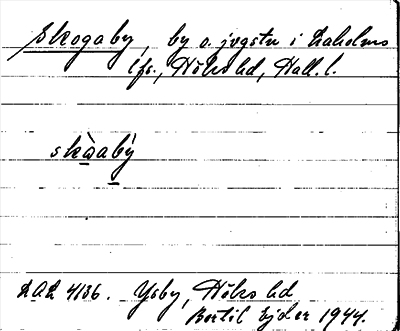 Skogaby, by o. jvgstn i Laholms
lfs., Höks hd, Hall. l.
skàabý
DAL 4136. Ysby, Höks hd
Bertil Ejder 1944.